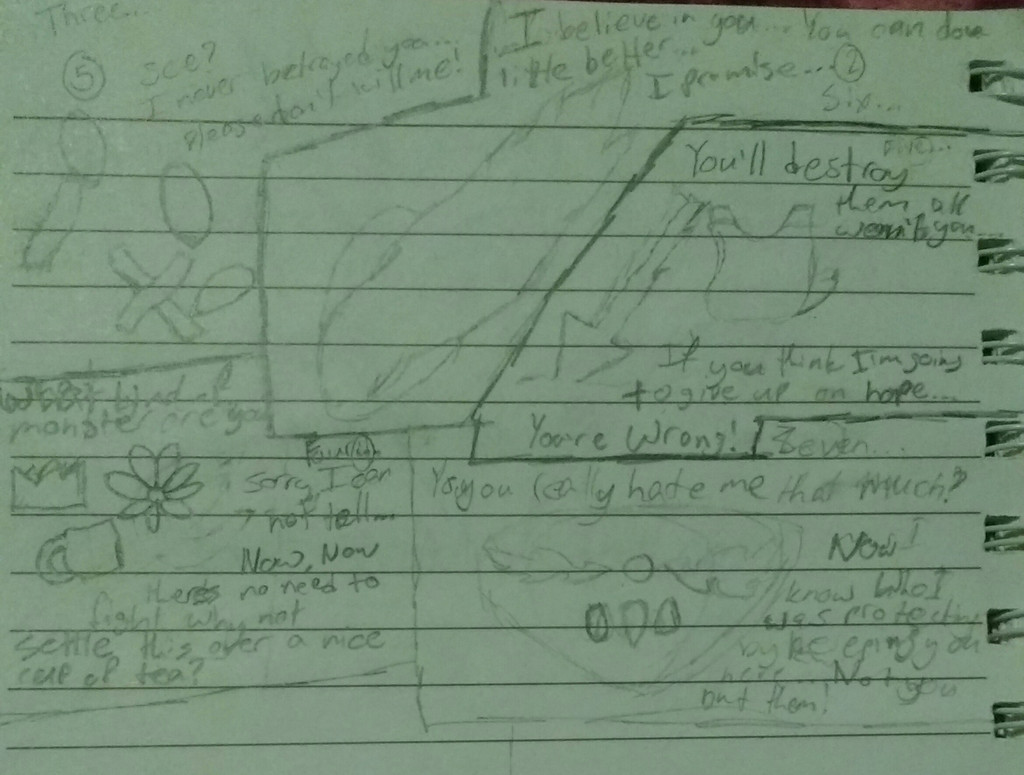 Three...
⑤ See?
I never betrayed you...
please don't kill me!
I believe in you... You can do a
little better...
I promise... ②
Six...
Five...
You'll destroy
them all
won't you...
If you think I'm going
to give up on hope...
You're Wrong!
Seven...
kind of
monster are you
Four
Sorry, I can
not tell...
Now, Now
there's no need to
fight why not
settle this over a nice
cup of tea?
Yo, you really hate me that much?
Now I
know who I
was protecting
by keeping you
here... Not you
but them!